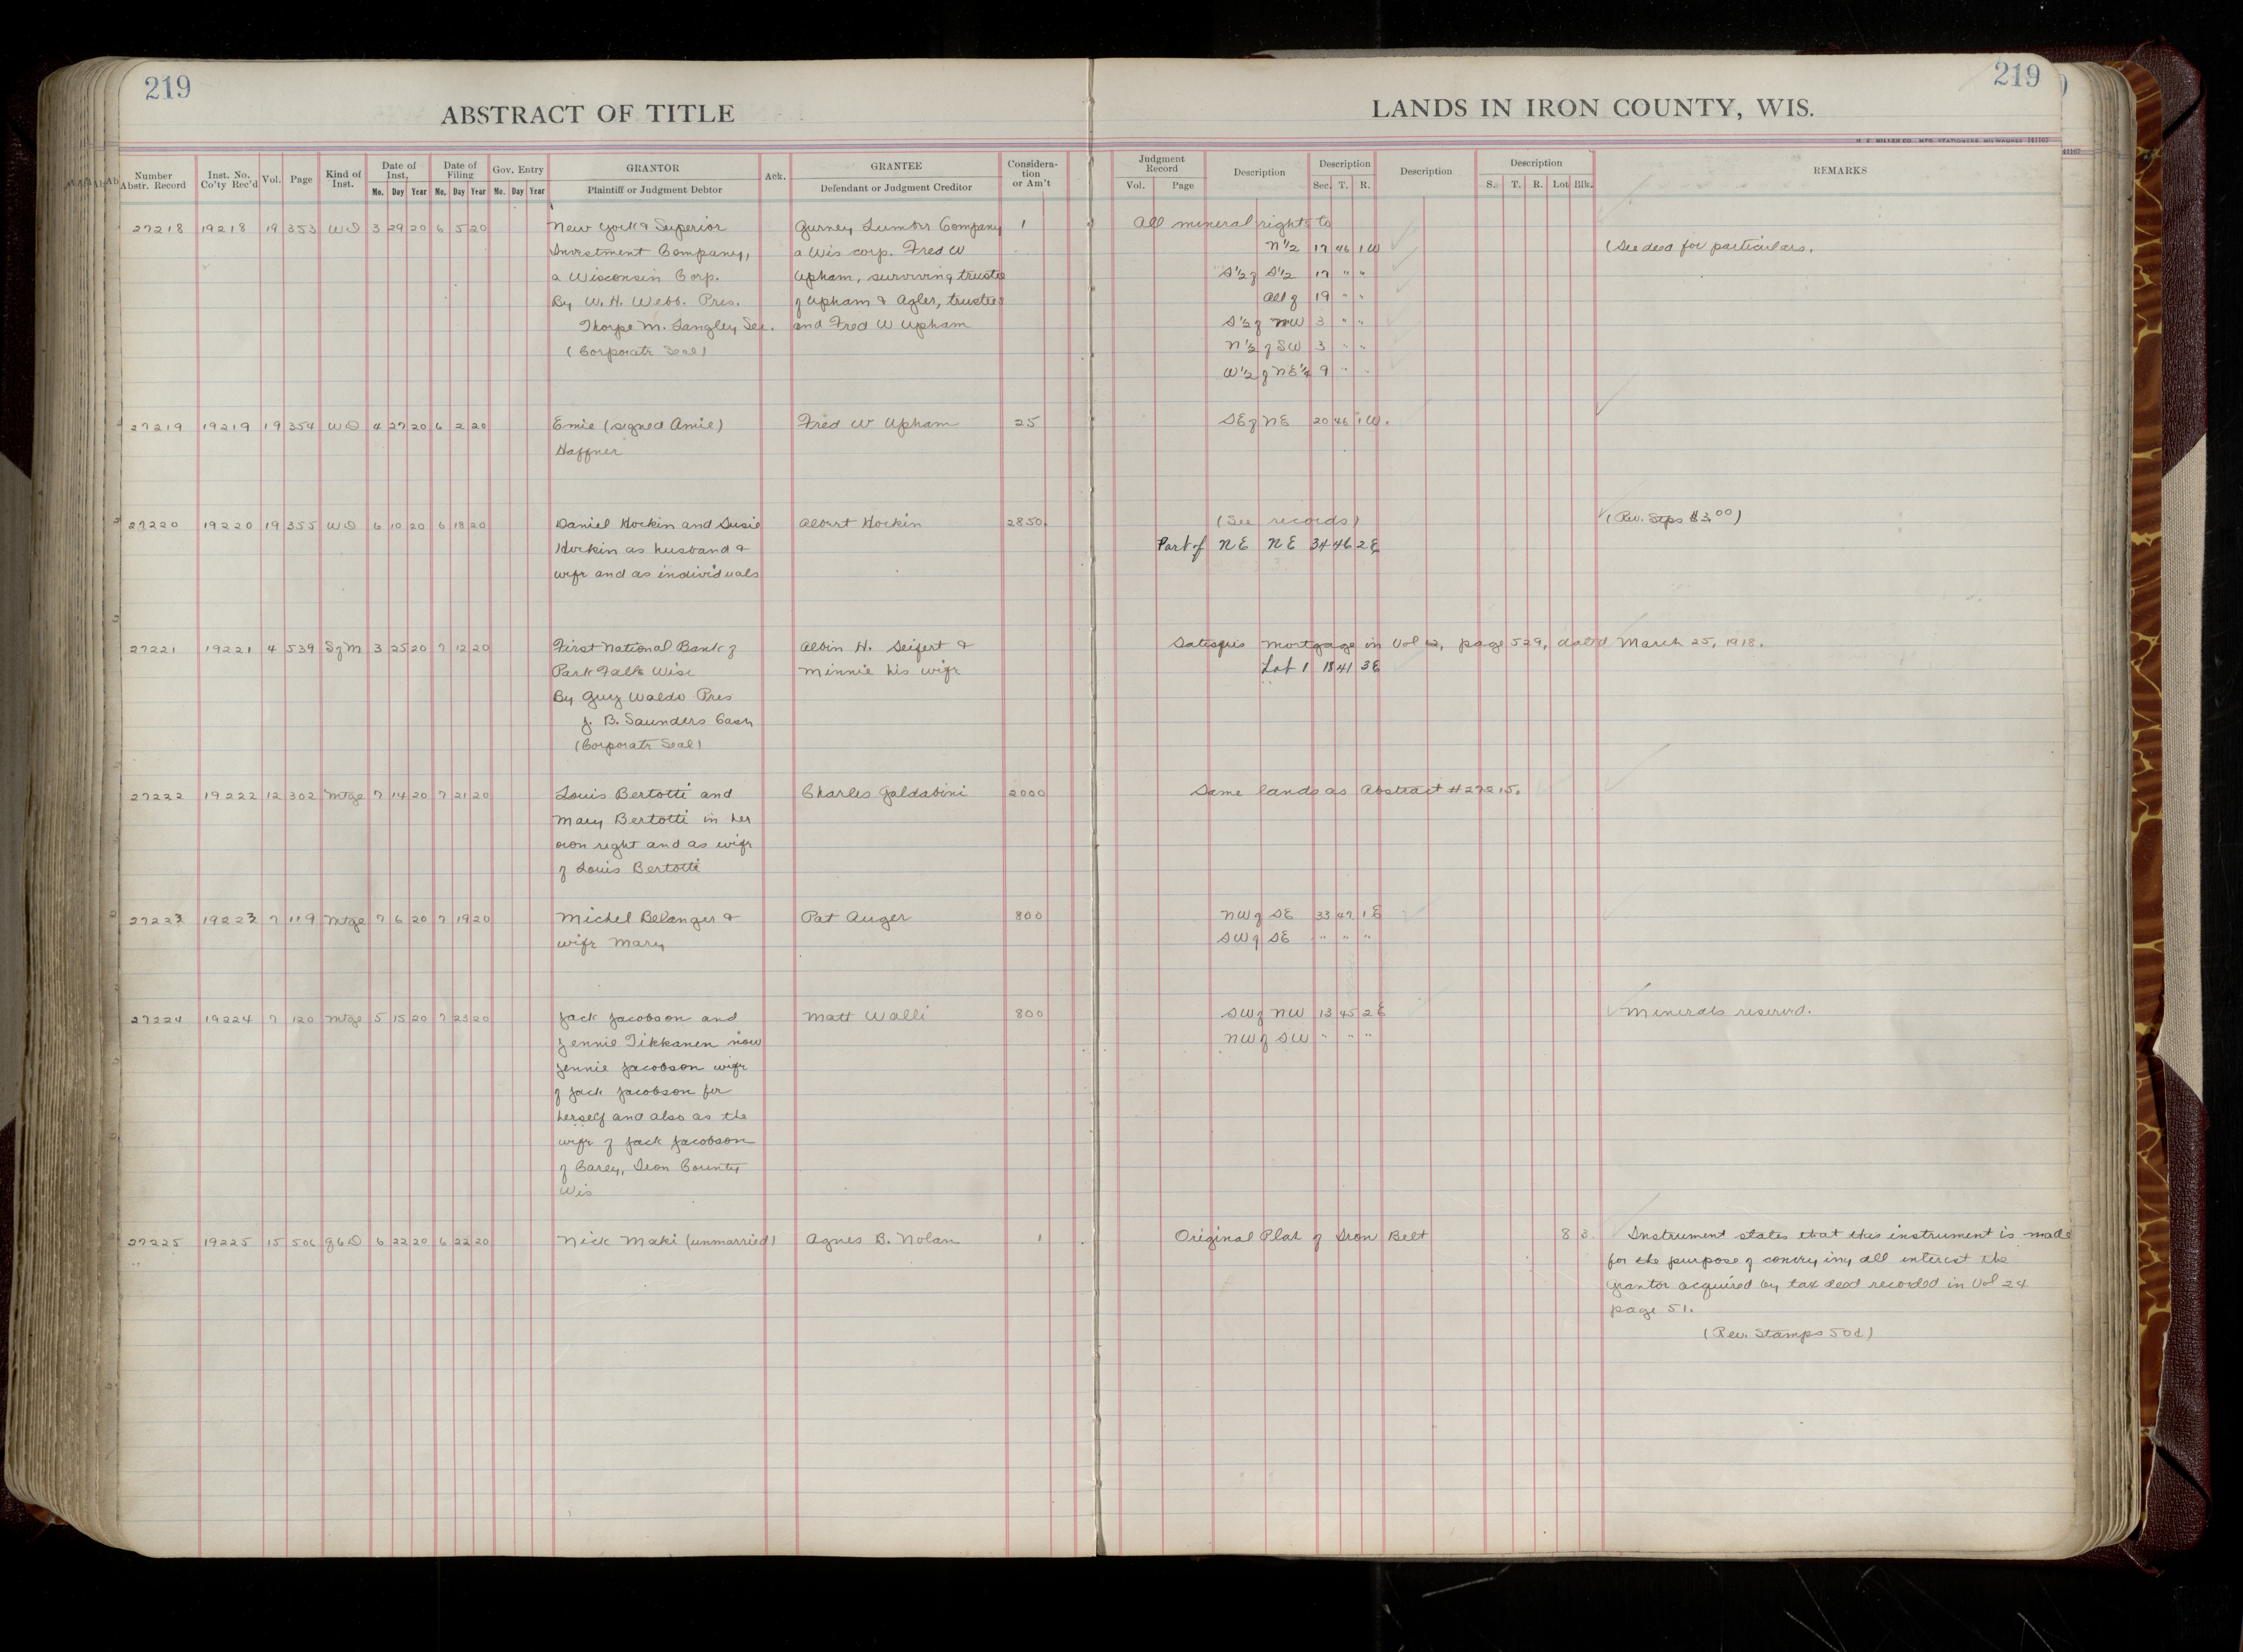 219
219
ABSTRACT OF TITLE
LANDS IN IRON COUNTY, WIS.
H. E. MILLER CO., MFG. STATIONERS, MILWAUKEE
Number Abstr. Record | Inst. No. Co'ty Rec'd | Vol. | Page | Kind of Inst. | Date of Inst. Mo. Day Year | Date of Filing Mo. Day Year | Gov. Entry Mo. Day Year | GRANTOR Plaintiff or Judgment Debtor | Ack. | GRANTEE Defendant or Judgment Creditor | Considera-tion or Am't | Judgment Record Vol. Page | Description | Description Sec. T. R. | Description | Description S. T. R. Lot Blk. | REMARKS
27218 19218 19 353 WD 3 29 20 6 5 20 New York & Superior Gurney Lumber Company 1 All mineral rights to
Investment Company, a Wis corp. Fred W N 1/2 17 46 1W (See deed for particulars.
a Wisconsin Corp. Upham, surviving trustee S 1/2 of S 1/2 17 " "
By W. H. Webb. Pres. of Upham & Agler, trustees All of 19 " "
Thorpe M. Langley Sec. and Fred W Upham S 1/2 of NW 3 " "
(Corporate Seal) N 1/2 of SW 3 " "
W 1/2 of NE 1/4 9 " "
27219 19219 19 354 WD 4 27 20 6 2 20 Emie (signed Amie) Fred W Upham 25 SE of NE 20 46 1W.
Haffner
27220 19220 19 355 WD 6 10 20 6 18 20 Daniel Hockin and Susie Albert Hockin 2850. (See records) (Rev. Stps $3.00)
Hockin as husband & Part of NE NE 34 46 2E
wife and as individuals
27221 19221 4 539 S of M 3 25 20 7 12 20 First National Bank of Albin H. Seifert & Satisfies Mortgage in Vol 12, page 529, dated March 25, 1918.
Park Falls Wisc Minnie his wife Lot 1 18 41 3E
By Guy Waldo Pres
J. B. Saunders Cash
(Corporate Seal)
27222 19222 12 302 Mtge 7 14 20 7 21 20 Louis Bertotti and Charles Galdabini 2000 Same lands as Abstract #27215.
Mary Bertotti in her
own right and as wife
of Louis Bertotti
27223 19223 7 119 Mtge 7 6 20 7 19 20 Michel Belanger & Pat Auger 800 NW of SE 33 47 1E
wife Mary SW of SE " " "
27224 19224 7 120 Mtge 5 15 20 7 23 20 Jack Jacobson and Matt Walli 800 SW of NW 13 45 2E Minerals reserved.
Jennie Tikkanen now NW of SW " " "
Jennie Jacobson wife
of Jack Jacobson for
herself and also as the
wife of Jack Jacobson
of Carey, Iron County
Wis
27225 19225 15 506 QCD 6 22 20 6 22 20 Nick Maki (unmarried) Agnes B. Nolan 1 Original Plat of Iron Belt 8 3. Instrument states that this instrument is made
for the purpose of conveying all interest the
grantor acquired by tax deed recorded in Vol 24
page 51.
(Rev. Stamps 50¢)